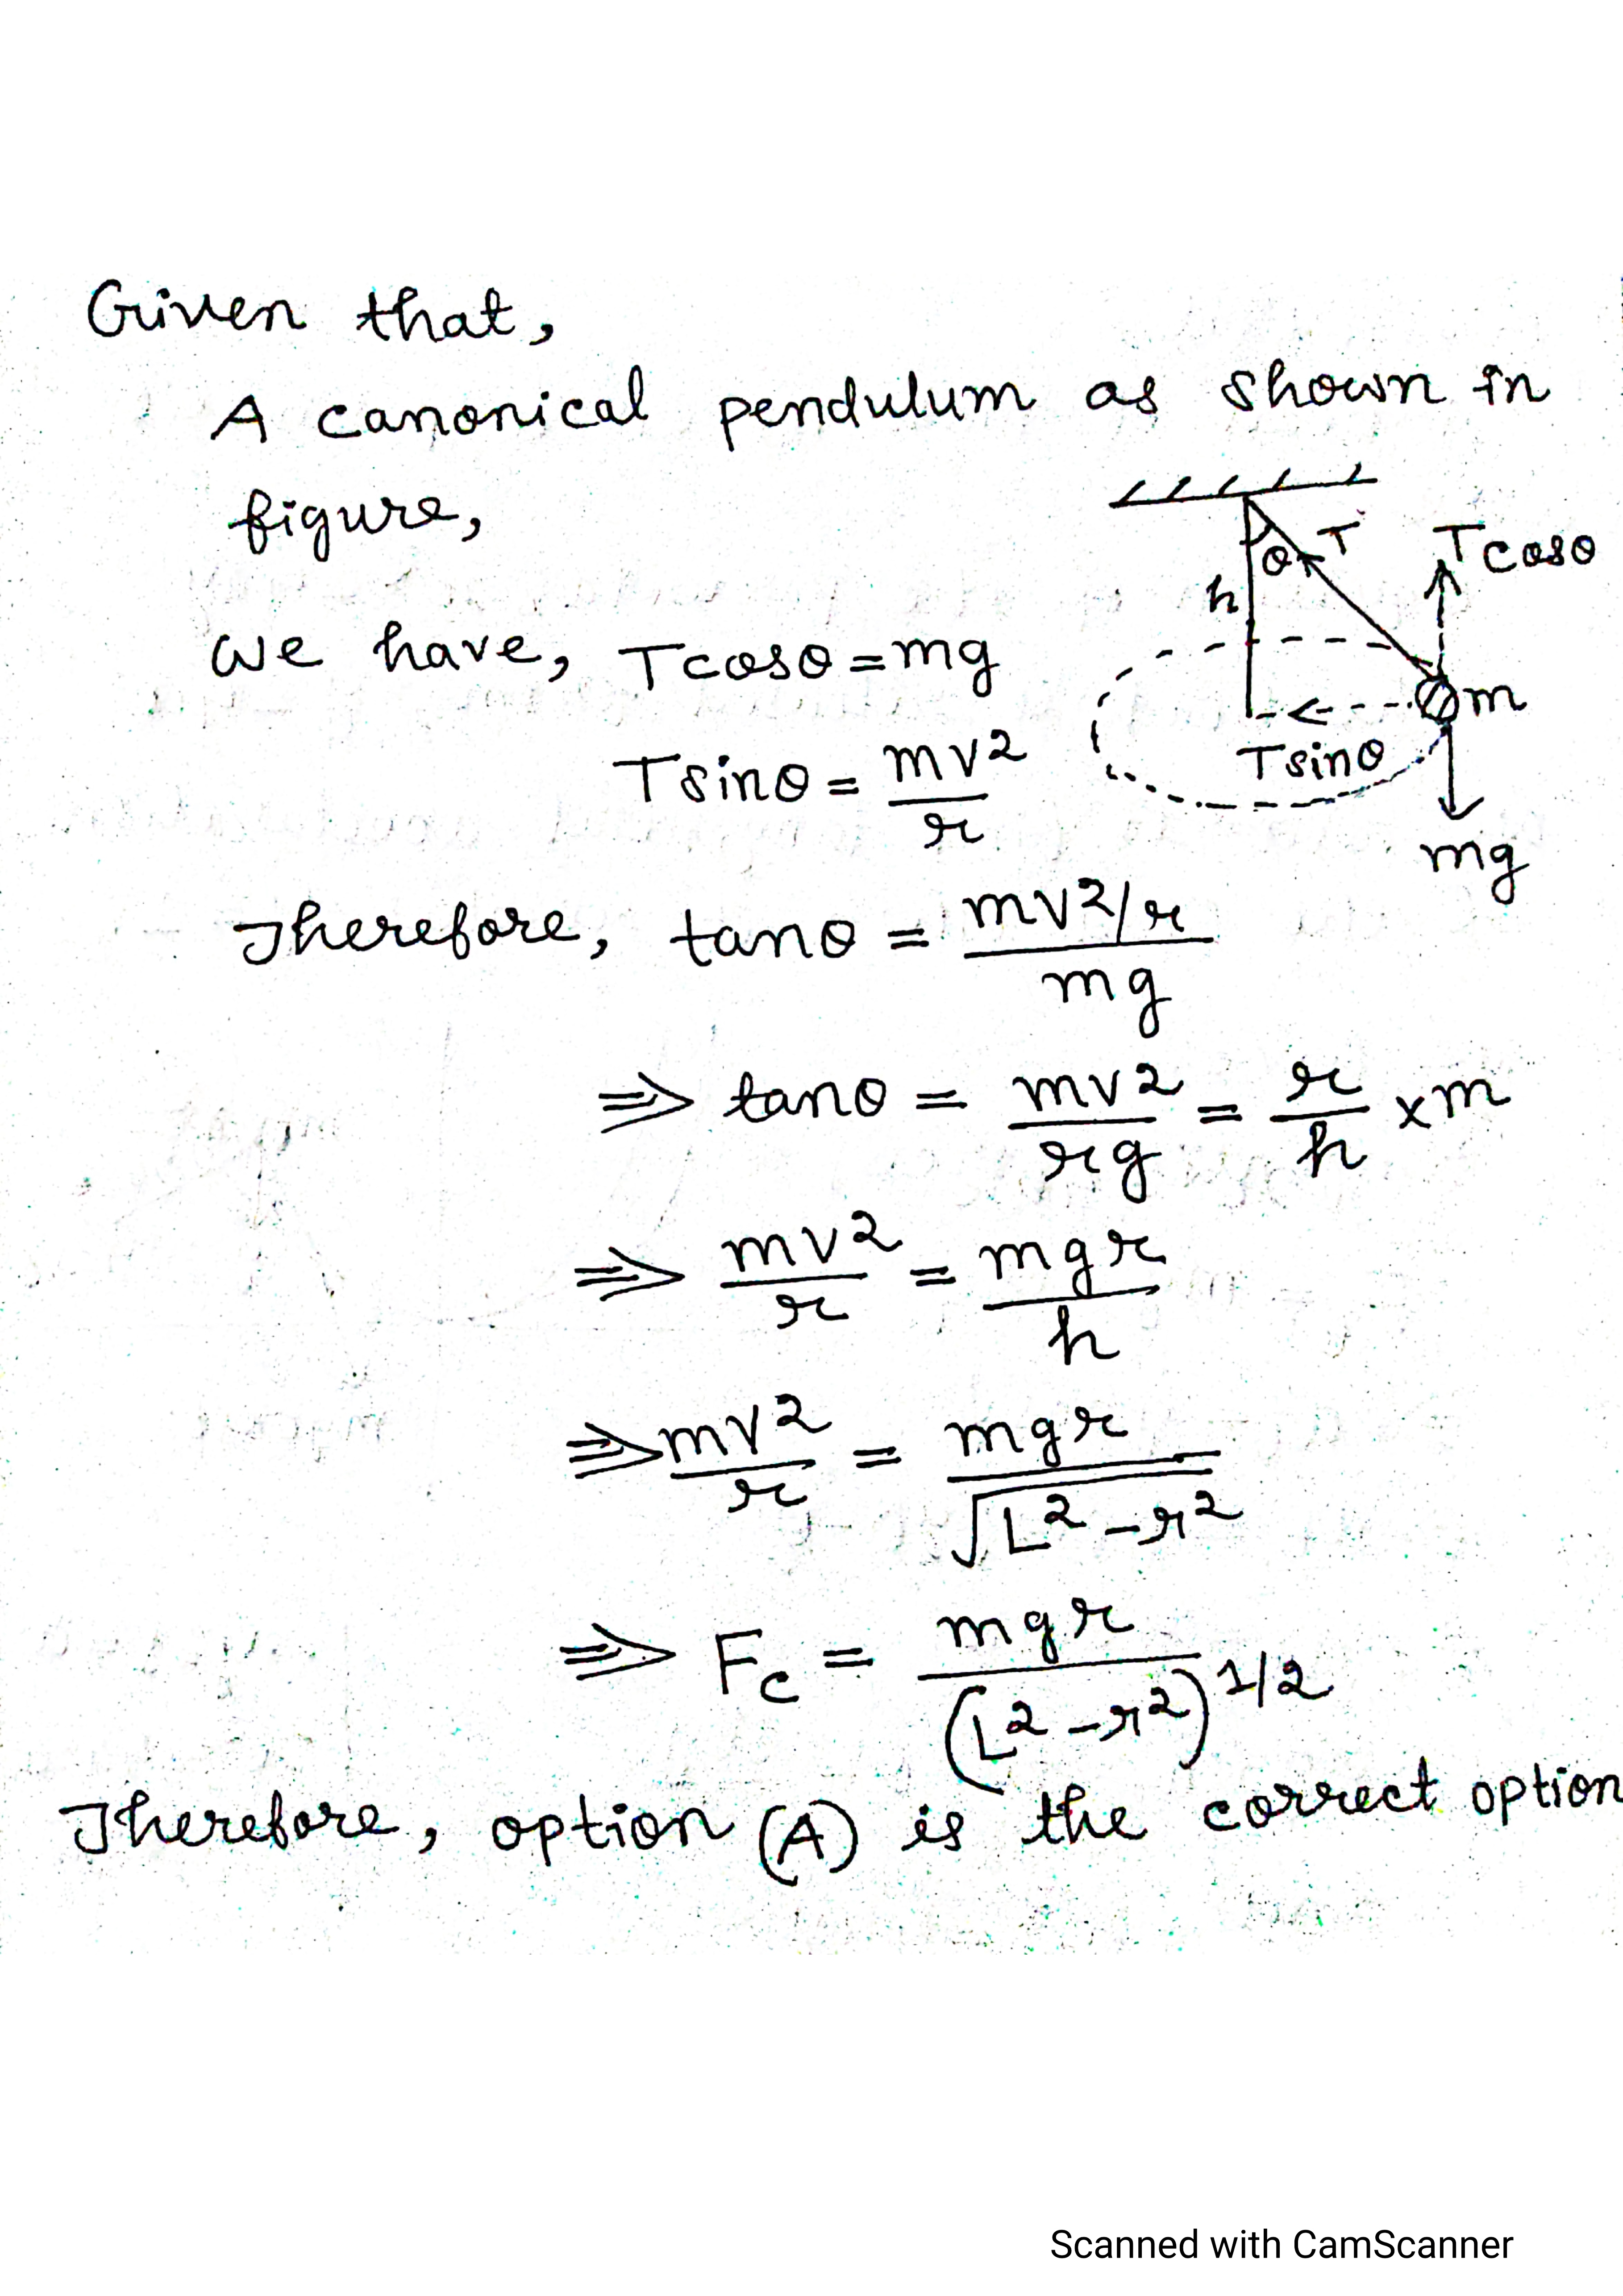 Given that,
A canonical pendulum as shown in
figure,
θ T Tcosθ
h
We have, Tcosθ = mg
m
Tsinθ = mv²/r
Tsinθ
mg
Therefore, tanθ = (mv²/r)/mg
⇒ tanθ = mv²/rg = r/h × m
⇒ mv²/r = mgr/h
⇒ mv²/r = mgr/√(L²-r²)
⇒ Fc = mgr/(L²-r²)^1/2
Therefore, option (A) is the correct option
Scanned with CamScanner